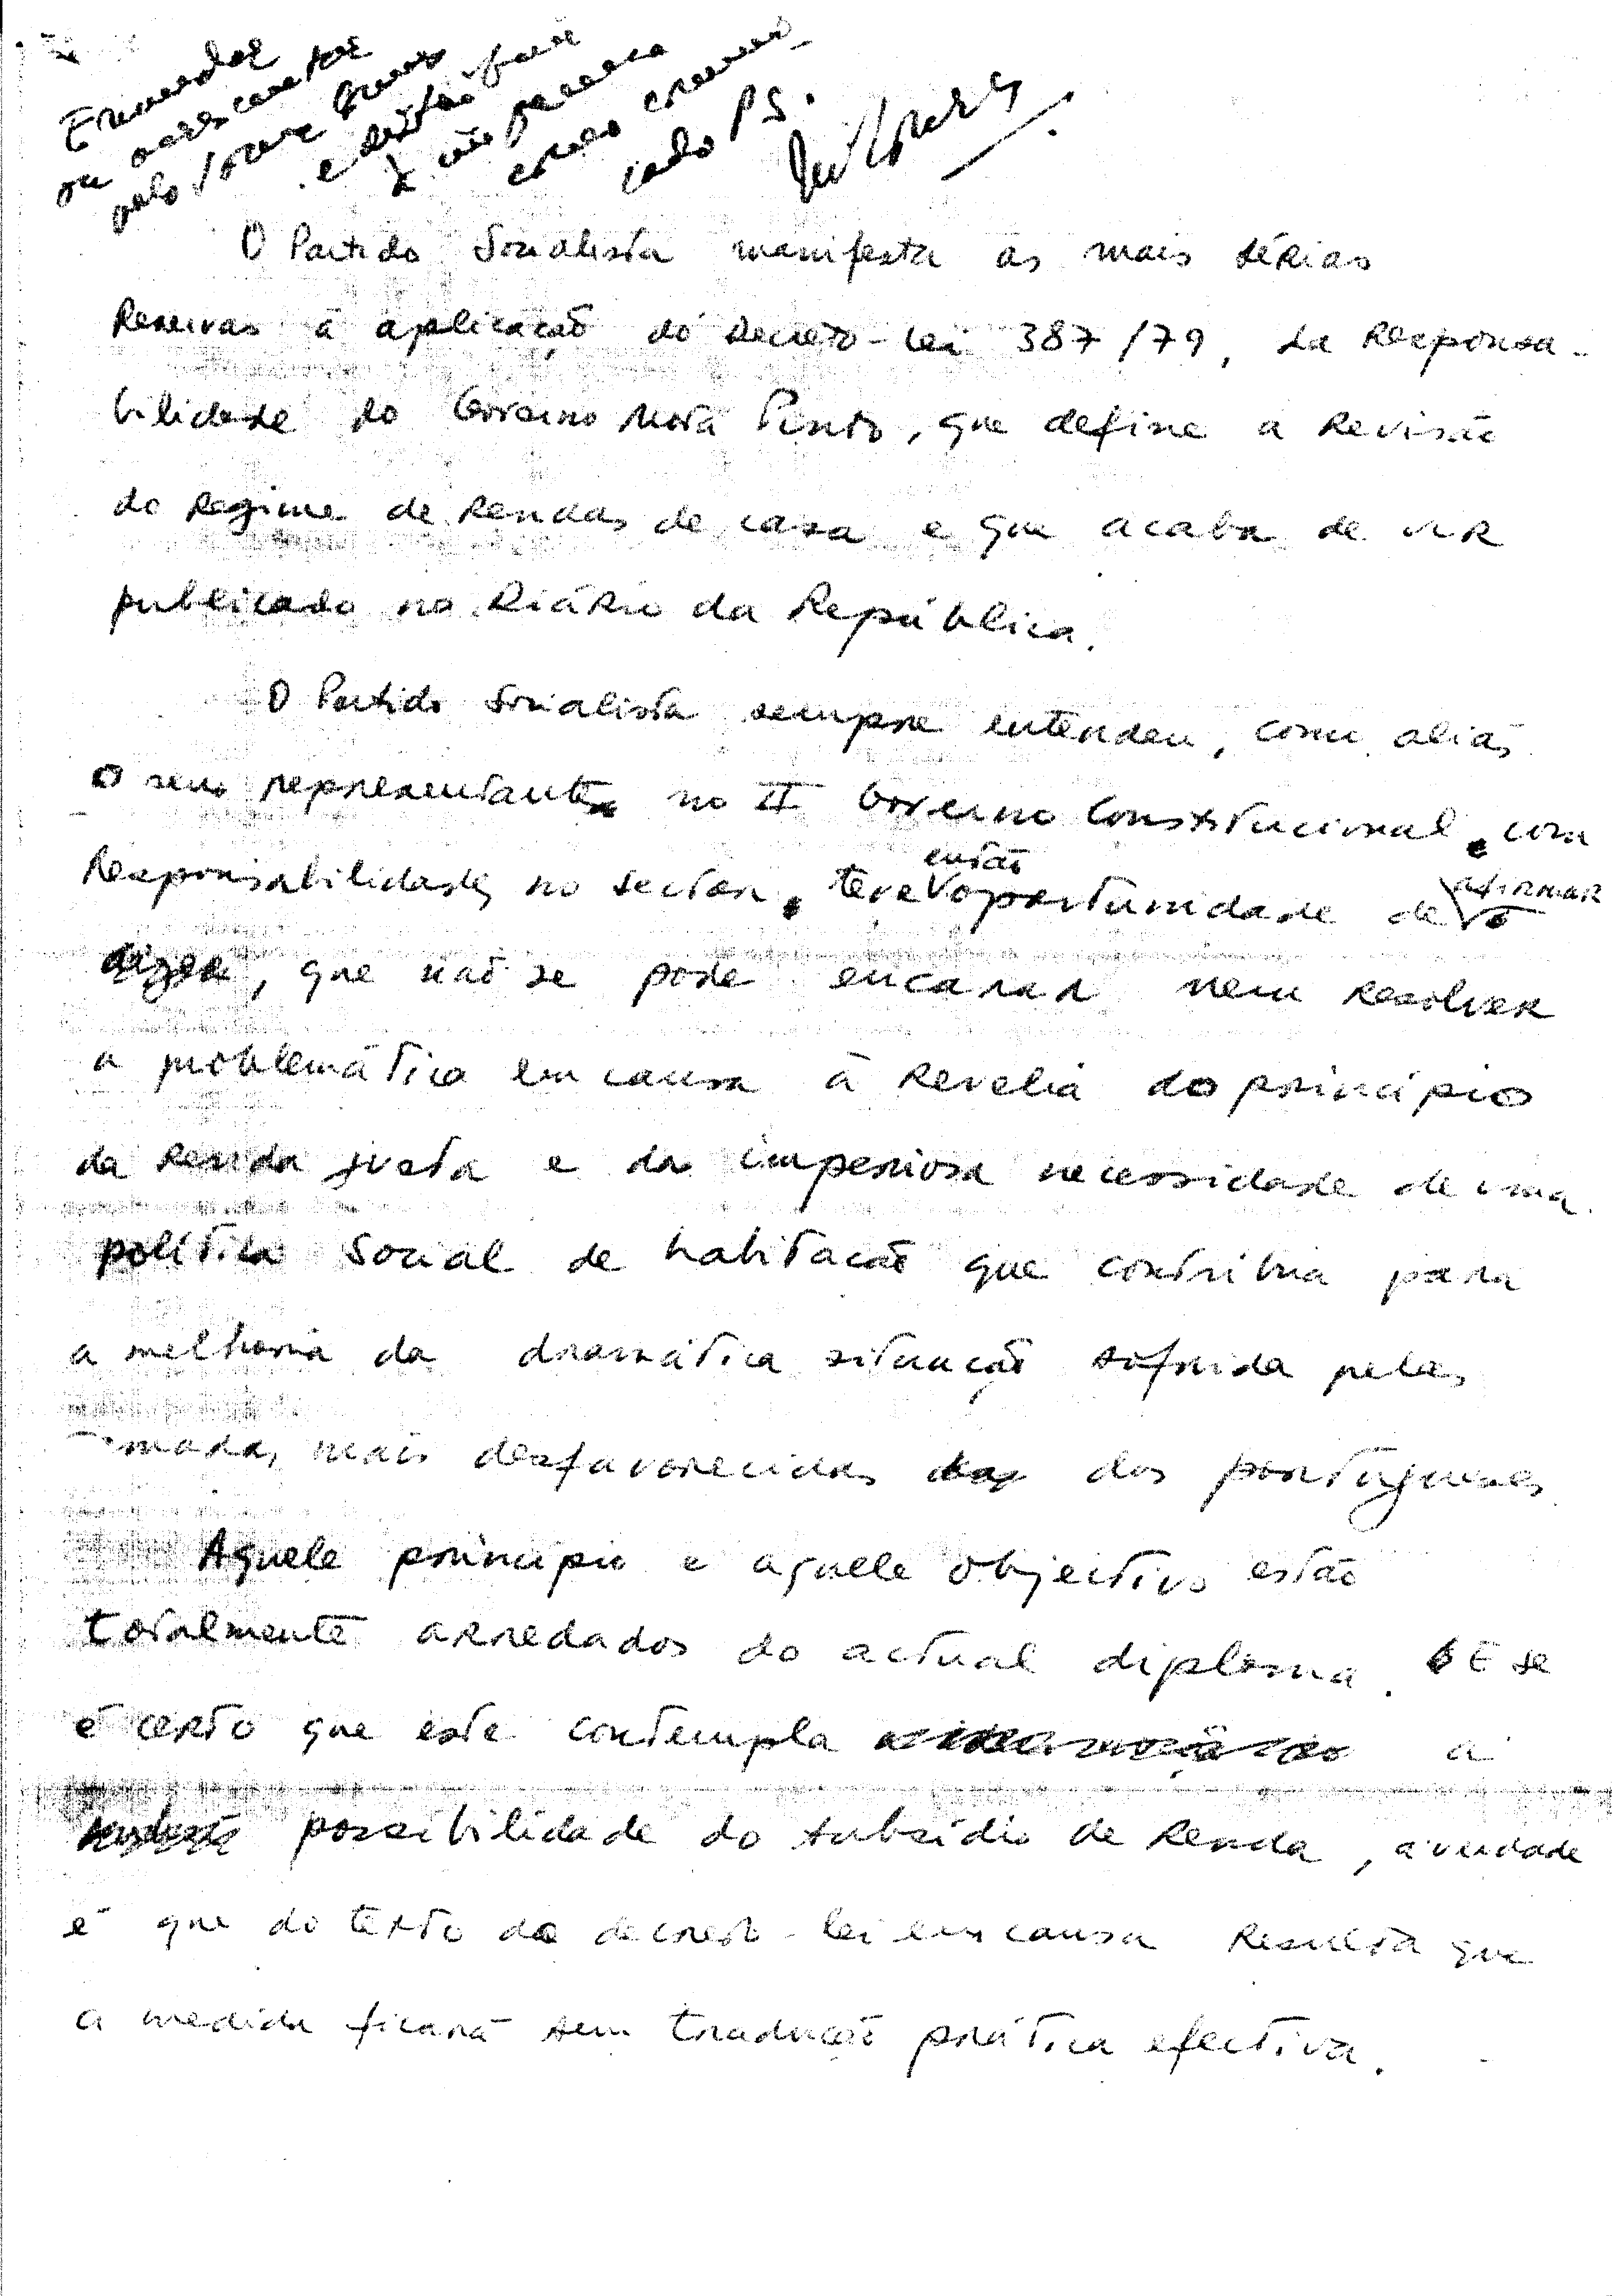 Emendar
ou acrescentar
pelo
e
X não pareça
PS.
O Partido Socialista manifesta as mais sérias
Reservas à aplicação do decreto-lei 387/79, da Responsa-
bilidade do Governo Mota Pinto, que define a Revisão
do Regime de Rendas de casa e que acaba de vir
publicado no Diário da República.
O Partido Socialista sempre entendeu, como aliás
o seu representante no II Governo Constitucional, com
Responsabilidades no sector, teve então oportunidade de o afirmar
dizer, que não se pode encarar nem Resolver
a problemática em causa à Revelia do princípio
da Renda justa e da imperiosa necessidade de uma
política Social de habitação que contribua para
a melhoria da dramática situação sofrida pelas
camadas mais desfavorecidas dos portugueses
Aquele princípio e aquele objectivo estão
totalmente arredados do actual diploma. E se
é certo que este contempla a
possibilidade do subsídio de Renda, a verdade
é que do texto do decreto-lei em causa Resulta que
a medida ficará sem tradução prática efectiva.